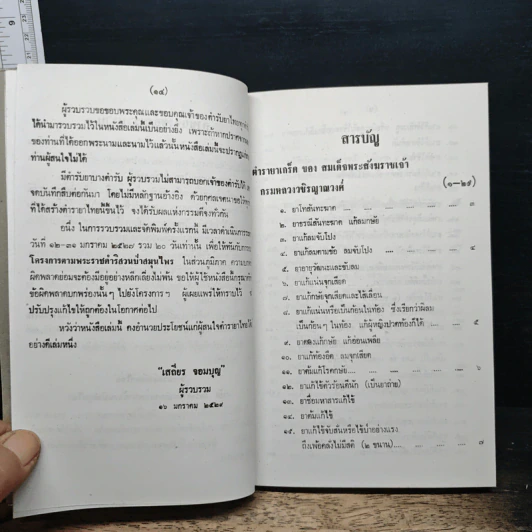 (๑๔)
ผู้รวบรวมขอขอบพระคุณและขอบคุณเจ้าของตำรับยาไทยทุกท่าน
ได้นำมารวบรวมไว้ในหนังสือเล่มนี้เป็นอย่างยิ่ง เพราะถ้าหากปราศจาก
ของท่านที่ได้ออกพระนามและนามไว้แล้วนั้นหนังสือเล่มนี้จะปรากฏแก่
ท่านผู้สนใจไม่ได้
มีตำรับยาบางตำรับ ผู้รวบรวมไม่สามารถบอกเจ้าของตำรับได้
จดบันทึกสืบต่อกันมา โดยไม่มีหลักฐานอ้างอิง ด้วยกุศลเจตนาขอให้
ที่ได้สร้างตำรายาไทยนี้ขึ้นไว้ จงได้รับผลแห่งกรรมดีจงทั่วกัน
อนึ่ง ในการรวบรวมและจัดพิมพ์ครั้งแรกนี้ มีเวลาดำเนินการ
วันที่ ๑๒-๓๑ มกราคม ๒๕๒๗ รวม ๒๐ วันเท่านั้น เพื่อให้ทันกับ
โครงการตามพระราชดำริสวนป่าสมุนไพร ในส่วนภูมิภาค ความ
ผิดพลาดย่อมจะต้องมีอยู่อย่างหลีกเลี่ยงไม่พ้น ขอให้ผู้ใช้หนังสือนี้กรุณา
ข้อผิดพลาดบกพร่องนั้น ๆ ไปยังโครงการ ฯ ผู้เผยแพร่ให้ทราบไว้
ปรับปรุงแก้ไขให้ถูกต้องในโอกาสต่อไป
หวังว่าหนังสือเล่มนี้ คงอำนวยประโยชน์แก่ผู้สนใจตำรายาไทยได้
อย่างดีเล่มหนึ่ง
"เสถียร จอมบุญ"
ผู้รวบรวม
๑๖ มกราคม ๒๕๒๙
สารบัญ
ตำรายาเกร็ด ของ สมเด็จพระสังฆราชเจ้า
กรมหลวงวชิรญาณวงศ์ (๑-๒๙)
๑. ยาโทสันทะฆาต
๒. ยาธรณีสันทะฆาต แก้ลมกษัย
๓. ยาแก้ลมจับโปง
๔. ยาแก้ลมตามข้อ ลมจับโปง
๕. ยาอายุวัฒนะและขับลม
๖. ยาแก้แน่นจุกเสียด
๗. ยาแก้กษัยจุกเสียดและไส้เลื่อน
๘. ยาแก้แน่นหรือเป็นก้อนในท้อง ซึ่งเรียกว่าผิลม
เป็นก้อนๆ ในท้อง แก้ผู้หญิงปวดท้องก็ได้ ๕
๙. ยาดองแก้กษัย แก้อ่อนเพลีย
๑๐. ยาแก้ท้องอืด ลมจุกเสียด
๑๑. ยาต้มแก้โรคกษัย ๖
๑๒. ยาแก้ไข้ตัวร้อนดีนัก (เป็นยาถ่าย)
๑๓. ยาเชื่อมหาสารแก้ไข้
๑๔. ยาต้มแก้ไข้
๑๕. ยาแก้ไข้จับสั่นหรือไข้ป่าอย่างแรง
ถึงเพ้อคลั่งไม่มีสติ (๒ ขนาน) ๗